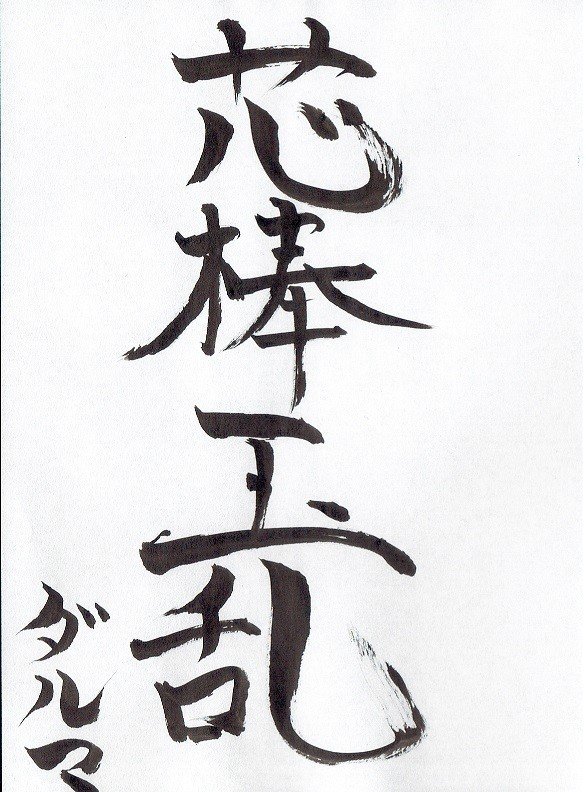 芯棒玉乱
ダルマ